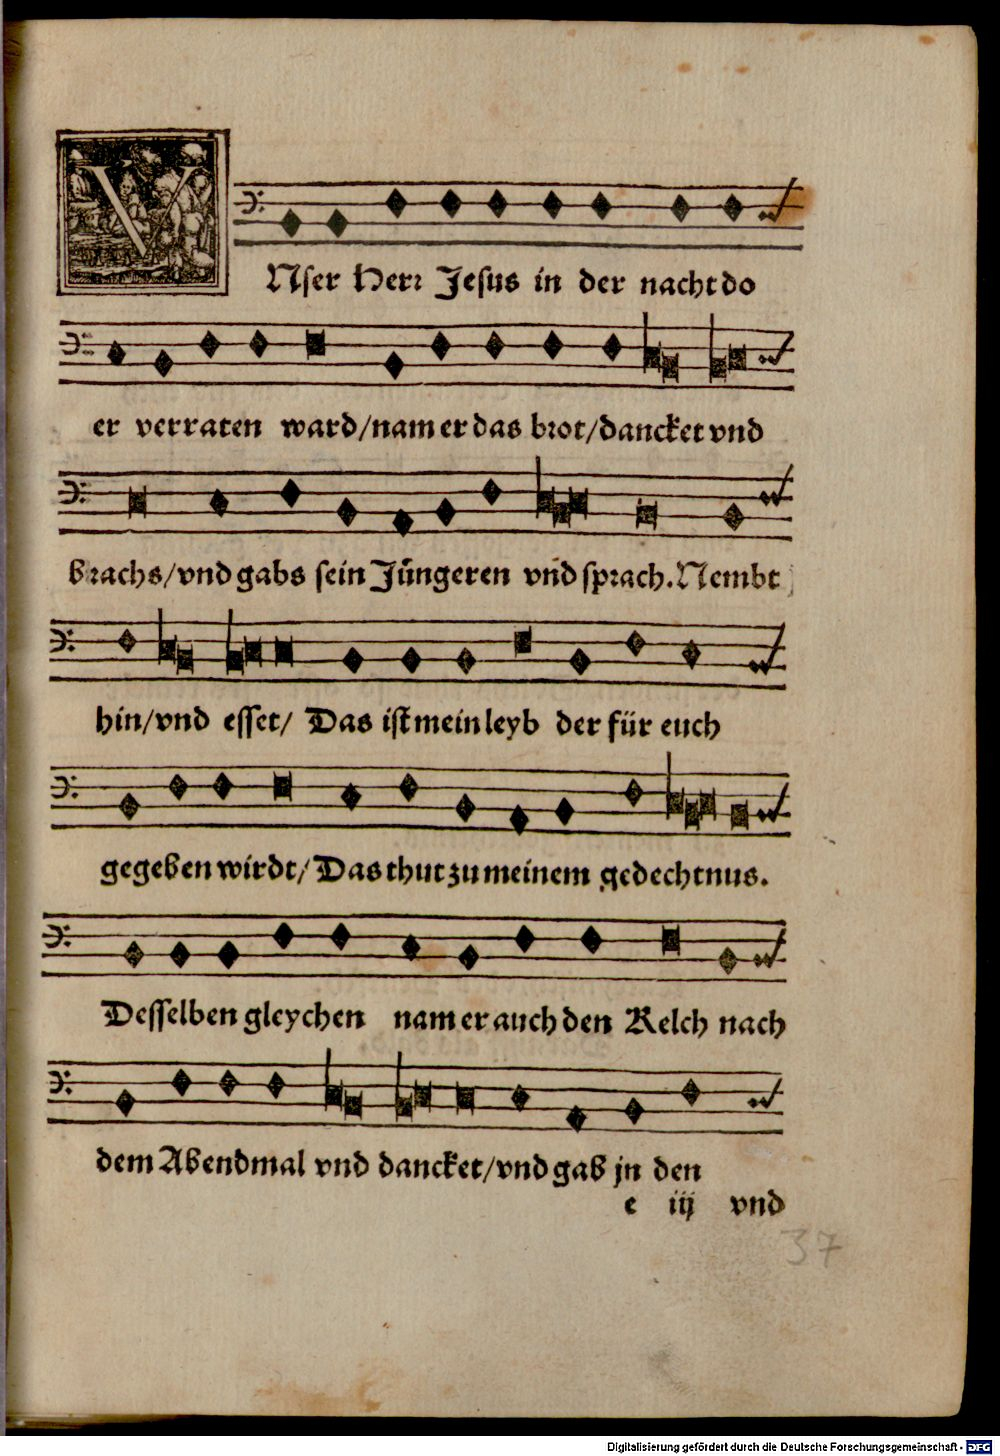 VNser Herr Jesus in der nacht do
er verraten ward/nam er das brot/dancket vnd
brachs/vnd gabs sein Jüngeren vnd sprach. Nembt
hin/vnd esset/ Das ist mein leyb der für euch
gegeben wirdt/Das thut zu meinem gedechtnus.
Desselben gleychen nam er auch den Kelch nach
dem Abendmal vnd dancket/vnd gab jn den
e iij vnd
37
Digitalisierung gefördert durch die Deutsche Forschungsgemeinschaft - DFG